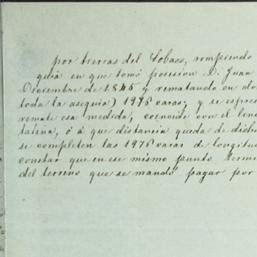 por tierras del Cobaes, rompiendo
quia en que tomó posesion D. Juan
Diciembre de 1845 y rematando en do
toda la asequia) 1978 varas; y se espres
remate esa medida, coincide con el lin
ó á que distancia queda de dicho
se completen las 1978 varas de longitu
constar que en ese mismo punto termi
del terreno que se mandó pagar por